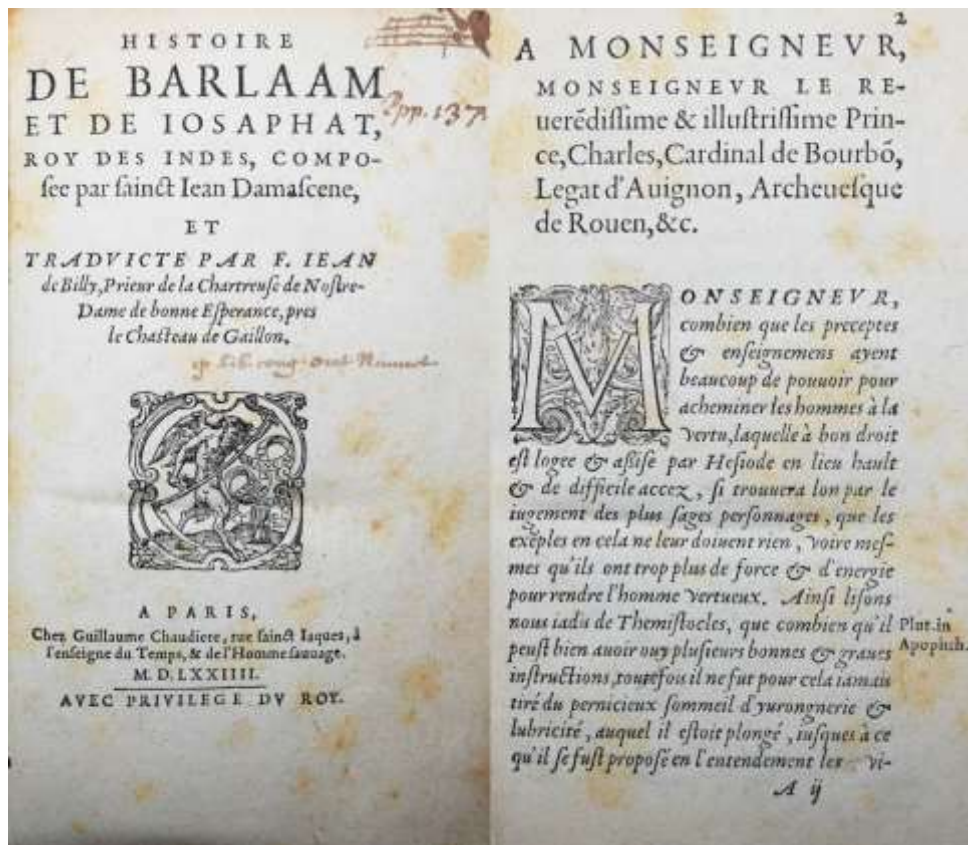 HISTOIRE
DE BARLAAM
ET DE IOSAPHAT,
ROY DES INDES, COMPO-
ſee par ſainct Iean Damaſcene,
ET
TRADVICTE PAR F. IEAN
de Billy, Prieur de la Chartreuſe de Noſtre-
Dame de bonne Eſperance, pres
le Chaſteau de Gaillon.
A PARIS,
Chez Guillaume Chaudiere, rue ſainct Iaques, à
l'enſeigne du Temps, & de l'Homme ſauuage.
M. D. LXXIIII.
AVEC PRIVILEGE DV ROY.
pp. 137
2
A MONSEIGNEVR,
MONSEIGNEVR LE RE-
uerēdiſſime & illuſtriſſime Prin-
ce, Charles, Cardinal de Bourbō,
Legat d'Auignon, Archeueſque
de Rouen, &c.
MONSEIGNEVR,
combien que les preceptes
& enſeignemens ayent
beaucoup de pouuoir pour
acheminer les hommes à la
vertu, laquelle à bon droit
eſt logee & aſſiſe par Heſiode en lieu hault
& de difficile accez, ſi trouuera lon par le
iugement des plus ſages perſonnages, que les
exēples en cela ne leur doiuent rien, voire meſ-
mes qu'ils ont trop plus de force & d'energie
pour rendre l'homme vertueux. Ainſi liſons
nous iadis de Themiſtocles, que combien qu'il
peuſt bien auoir ouy pluſieurs bonnes & graues
inſtructions, toutefois il ne fut pour cela iamais
tiré du pernicieux ſommeil d'yurongnerie &
lubricité, auquel il eſtoit plongé, iuſques à ce
qu'il ſe fuſt propoſé en l'entendement les vi-
A ij
Plut. in
Apophth.